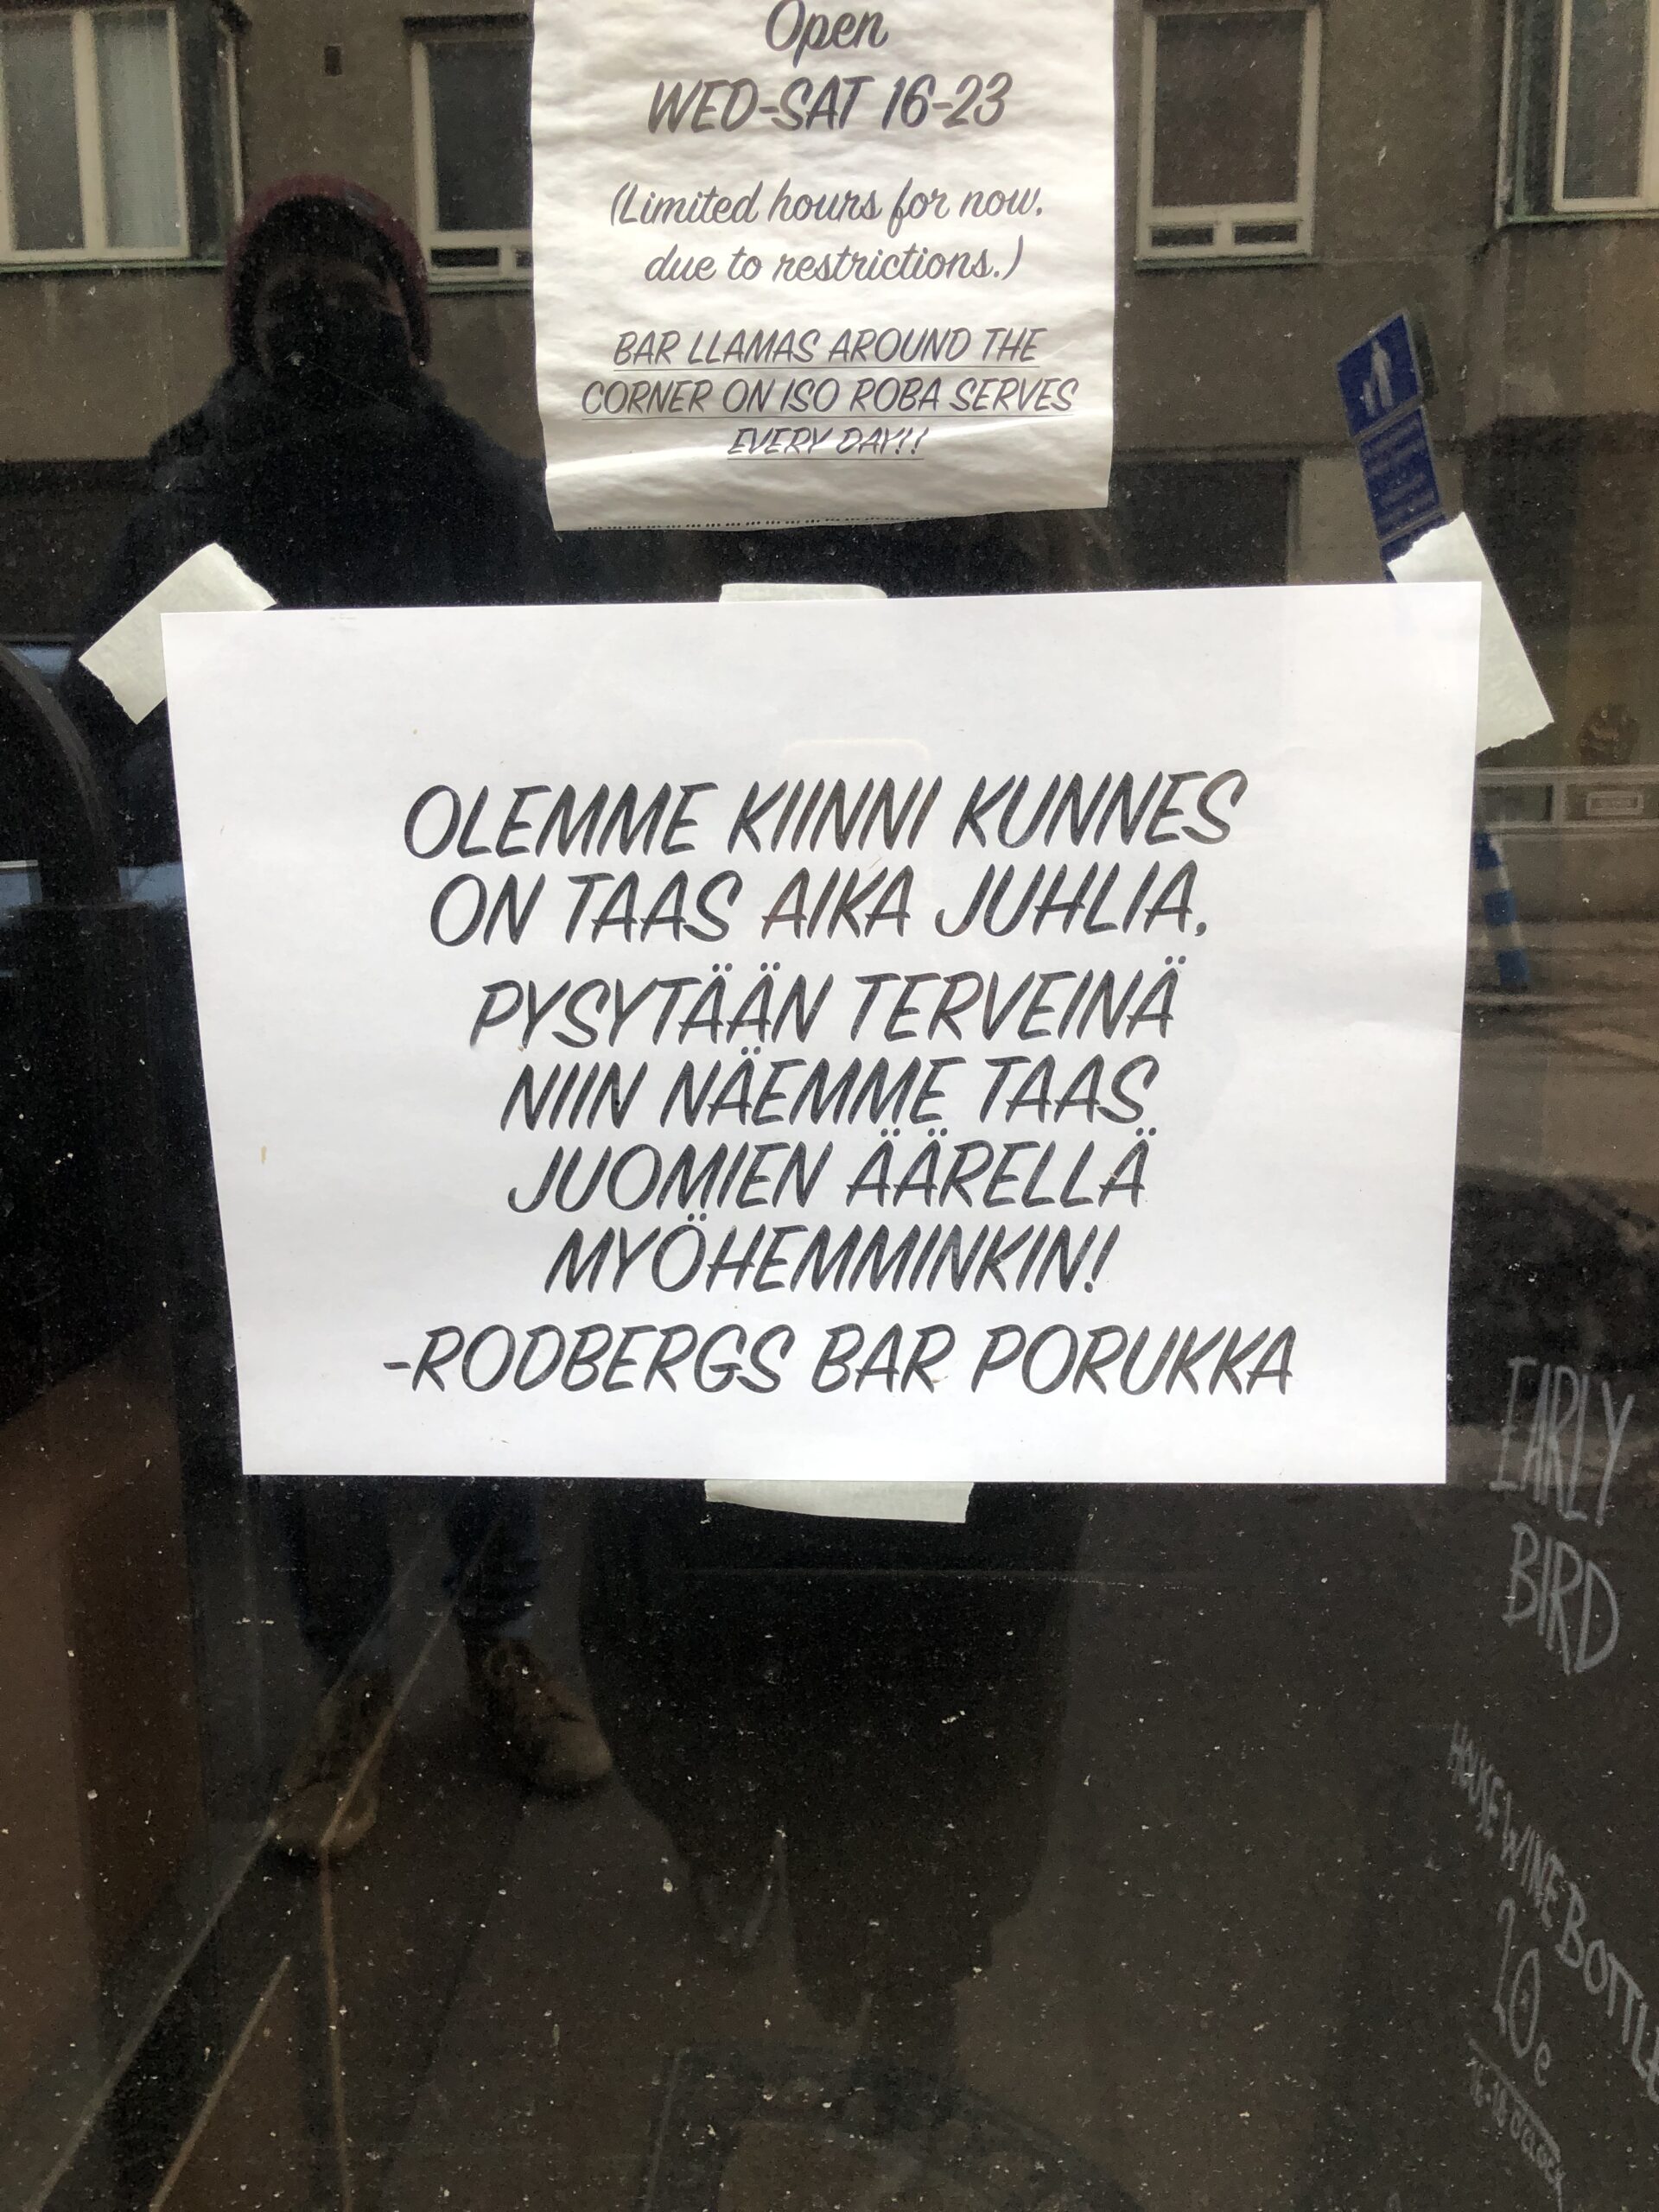 Open
WED-SAT 16-23
(Limited hours for now,
due to restrictions.)
BAR LLAMAS AROUND THE
CORNER ON ISO ROBA SERVES
EVERY DAY!!
OLEMME KIINNI KUNNES
ON TAAS AIKA JUHLIA.
PYSYTÄÄN TERVEINÄ
NIIN NÄEMME TAAS
JUOMIEN ÄÄRELLÄ
MYÖHEMMINKIN!
-RODBERGS BAR PORUKKA
EARLY
BIRD
HOUSE WINE BOTTLE
20e
16-18